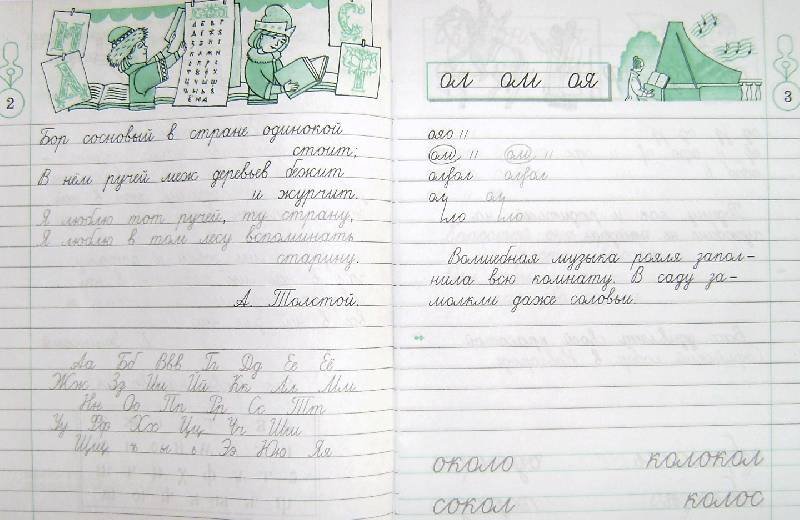 2
Бор сосновый в стране одинокой
стоит;
В нём ручей меж деревьев бежит
и журчит.
Я люблю тот ручей, ту страну,
Я люблю в том лесу вспоминать
старину.
А. Толстой.
Аа Бб Ввв Гг Дд Ее Ёё
Жж Зз Ии Йй Кк Лл Мм
Нн Оо Пп Рр Сс Тт
Уу Фф Хх Цц Чч Шш
Щщ ъ ы ь Ээ Юю Яя
ол ом оя
3
Волшебная музыка рояля запол-
нила всю комнату. В саду за-
молкли даже соловьи.
около колокол
сокол колос